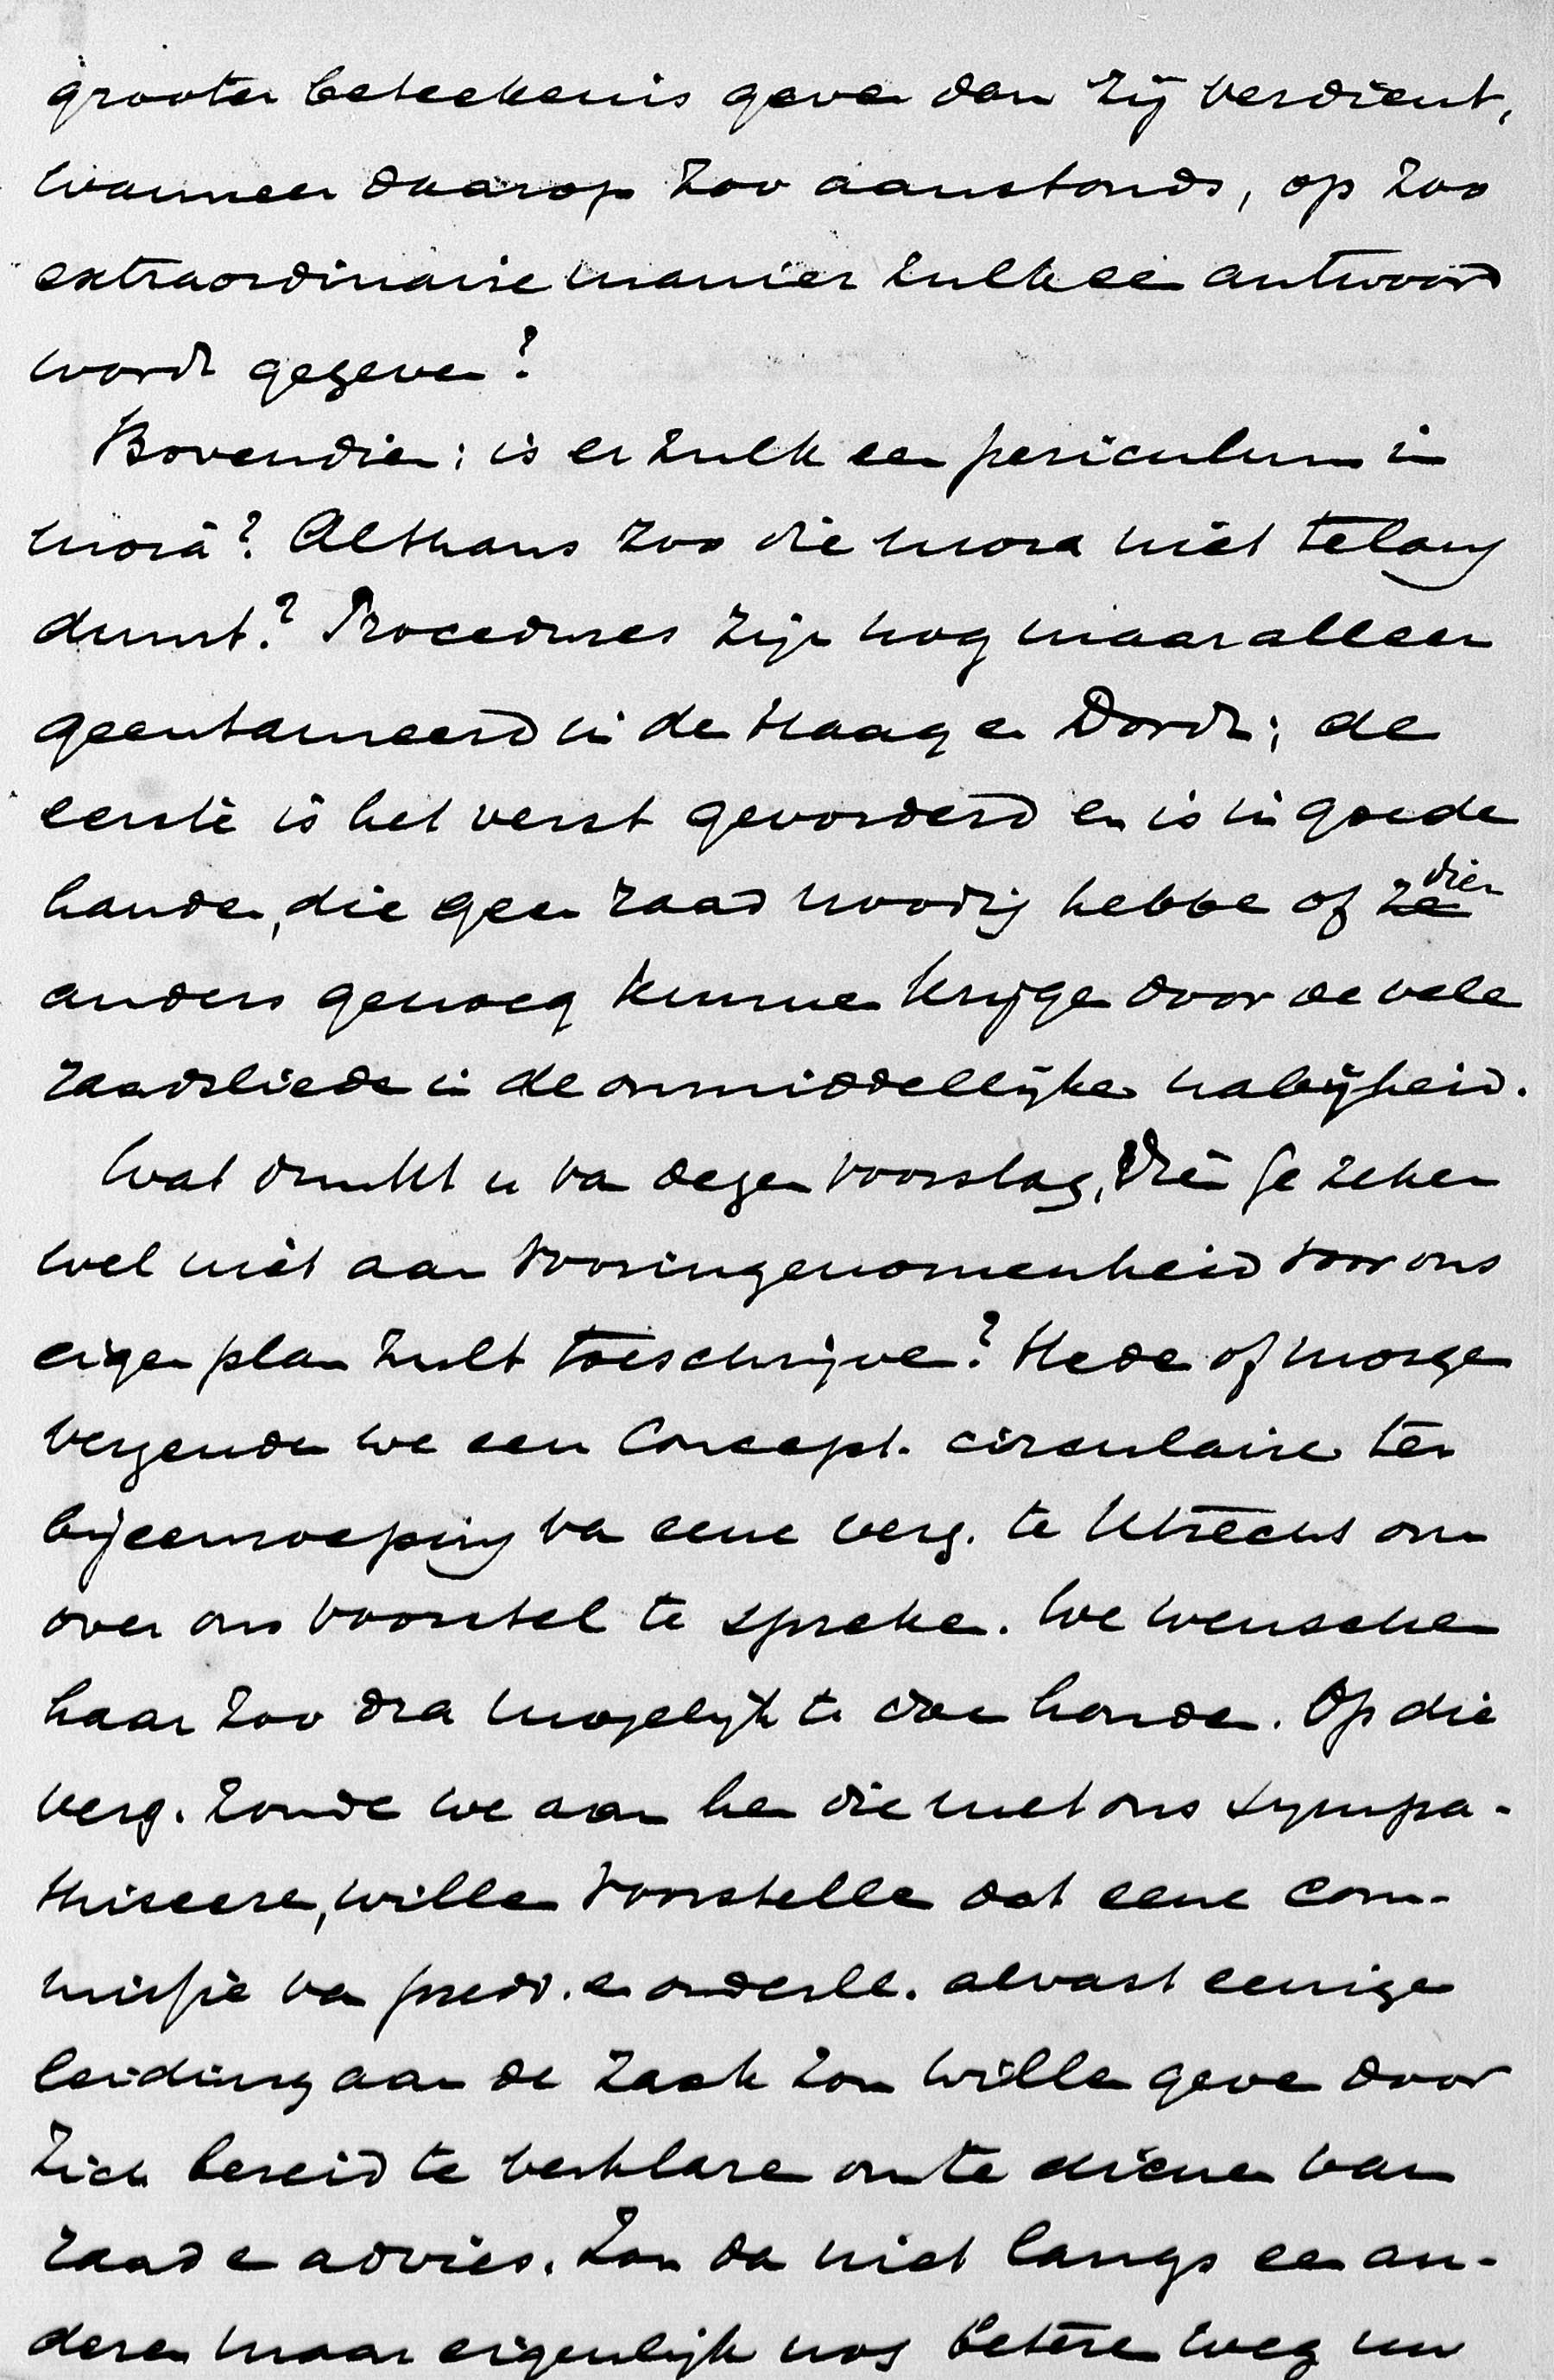 grooter beteekenis geven dan zij verdient,
wanneer daarop zoo aanstonds, op zoo
extraordinaire manier zulk een antwoord
wordt gegeven?
Bovendien: is er zulk een periculum in
morâ? Althans zoo die mora niet te lang
duurt? Procedures zijn nog maar alleen
geentameerd in den Haag en Dordt; de
eerste is het verst gevorderd en is in goede
handen, die geen raad noodig hebben of dien
anders genoeg kunnen krijgen door de vele
raadslieden in de onmiddellijke nabijheid.
Wat dunkt u van dezen voorslag, dien ge zeker
wel niet aan vooringenomenheid voor ons
eigen plan zult toeschrijven? Heden of morgen
verzenden we een Concept-circulaire ter
bijeenroeping van eene verg. te Utrecht om
over ons voorstel te spreken. We wenschen
haar zoo dra mogelijk te doen houden. Op die
verg. zouden we aan hen die met ons sympa-
thiseeren, willen voorstellen dat eene com-
missie van predd. en ouderll. alvast eenige
leiding aan de zaak zou willen geven door
zich bereid te verklaren om te dienen van
raad en advies. Zou dan niet langs een an-
deren maar eigenlijk nog beteren weg uw